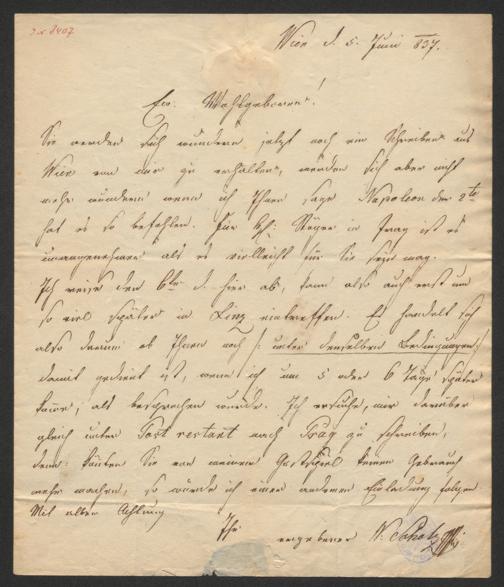 Wien d. 5. Juni 837.
Ew. Wohlgeboren!
Sie werden sich wundern jetzt noch ein Schreiben aus
Wien von mir zu erhalten, werden sich aber nicht
mehr wundern wenn ich Ihnen sage Napoleon der 2te
hat es so befohlen. Für H: Stöger in Prag ist es
unangenehmer als es vielleicht für Sie seyn mag.
Ich reise den 6ten d. hier ab, kann also auch erst um
so viel später in Linz eintreffen. Es handelt sich
also darum ob Ihnen noch /: unter denselben Bedingungen :/
damit gedient ist, wenn ich um 5 oder 6 Tage später
komme, als besprochen wurde. Ich ersuche, mir darüber
gleich unter Post restant nach Prag zu schreiben,
denn: könnten Sie von meinem Gastspiel keinen Gebrauch
mehr machen, so würde ich einer anderen Einladung folgen.
Mit aller Achtung
Ihr ergebener W. Scholz